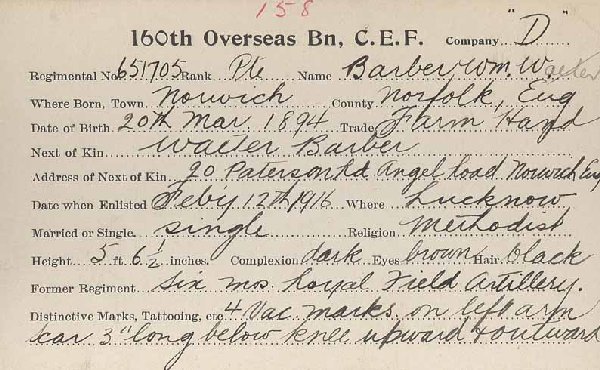 158
160th Overseas Bn, C.E.F. Company "D"
Regimental No. 651705 Rank Pte Name Barber Wm. Walter
Where Born, Town Norwich County Norfolk, Eng
Date of Birth 20th Mar 1894 Trade Farm Hand
Next of Kin Walter Barber
Address of Next of Kin 90 Paterson Rd Angel Road Norwich Eng
Date when Enlisted Feby 12th 1916 Where Lucknow
Married or Single single Religion Methodist
Height 5 ft. 6 1/2 inches. Complexion dark Eyes brown Hair black
Former Regiment Six mos. Royal Field Artillery.
Distinctive Marks, Tattooing, etc 4 Vac marks on left arm
scar 3" long below knee upward & outward